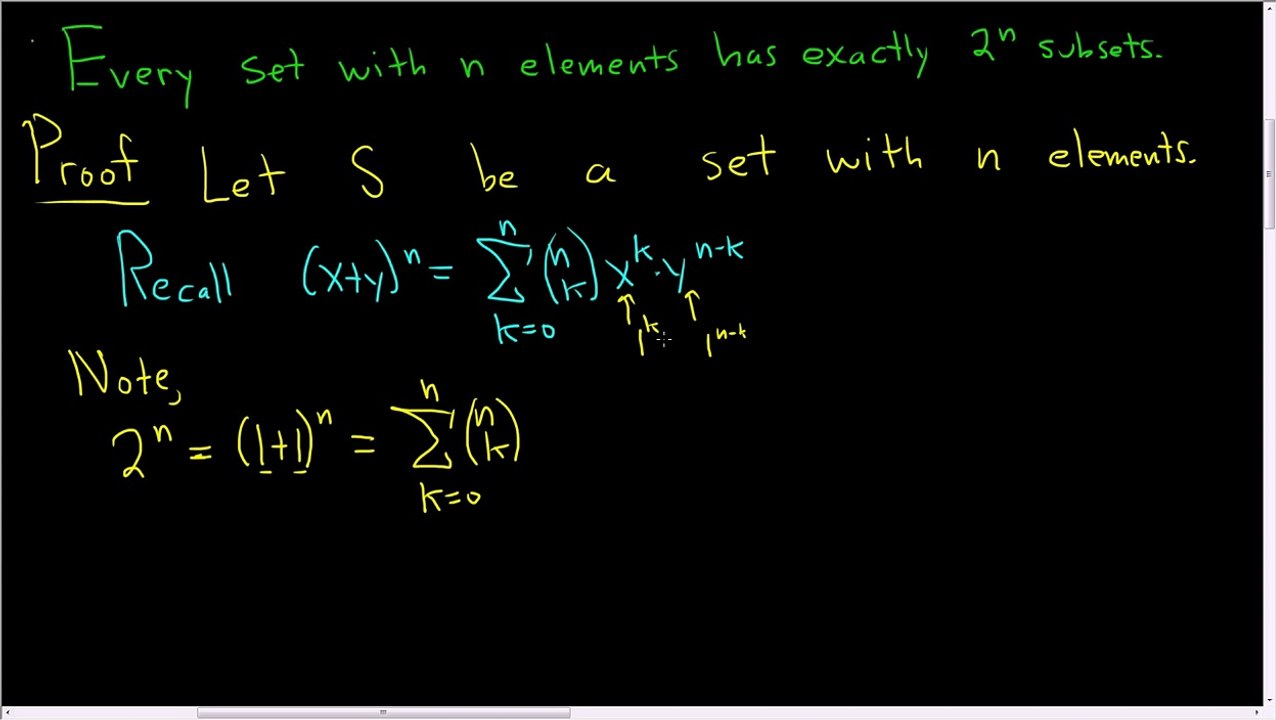 Every set with n elements has exactly 2ⁿ subsets.
Proof Let S be a set with n elements.
n
Recall (x+y)ⁿ = ∑ (n k) xᵏ · yⁿ⁻ᵏ
k=0
↑ ↑
1ᵏ 1ⁿ⁻ᵏ
Note,
n
2ⁿ = (1+1)ⁿ = ∑ (n k)
k=0